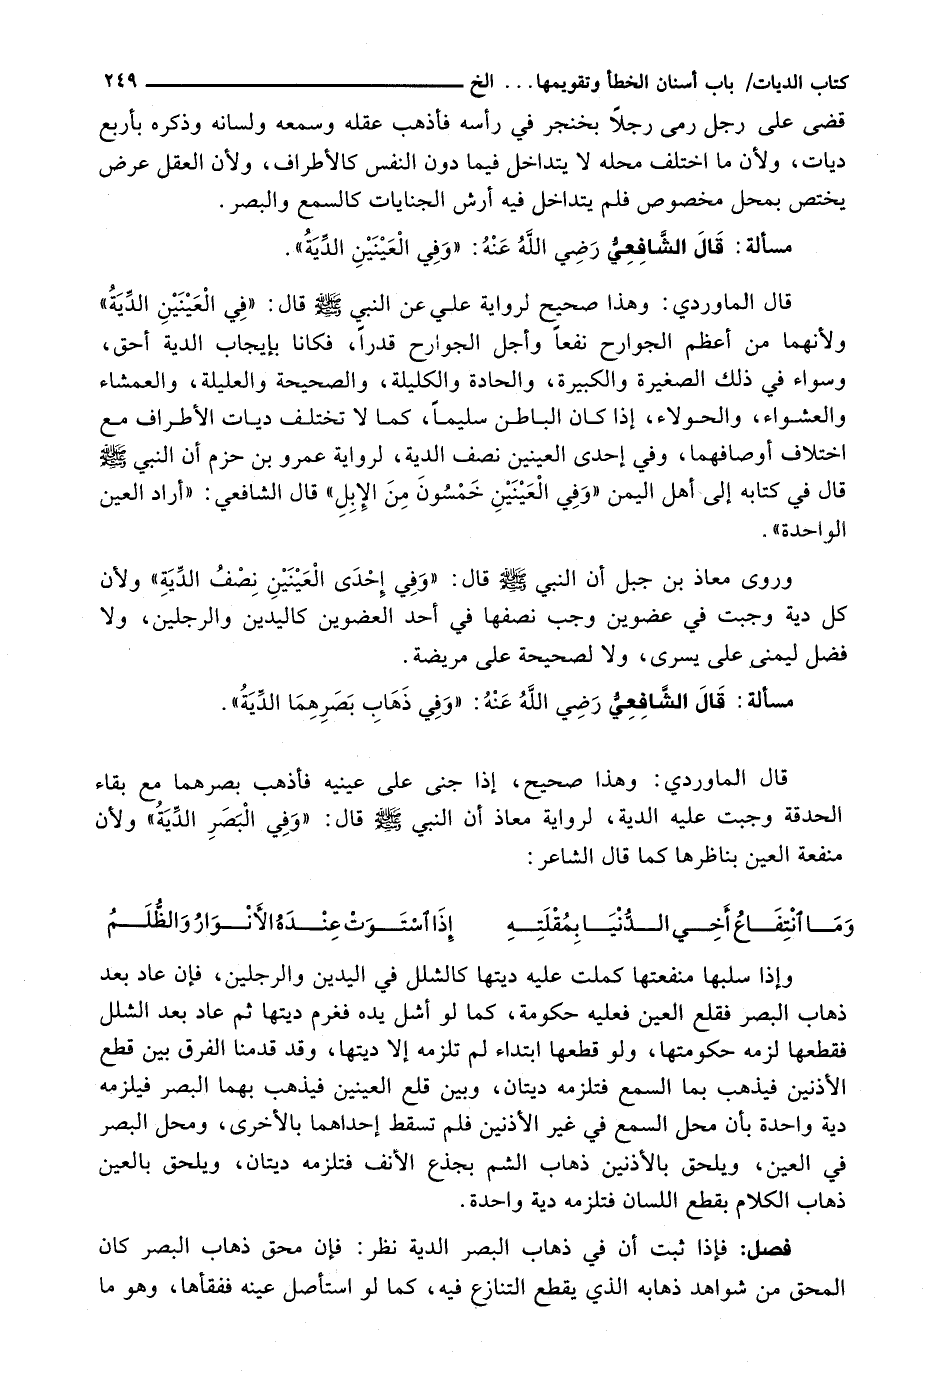 كتاب الديات/ باب أسنان الخطأ وتقويمها... الخ ــــــــ ٢٤٩
قضى على رجل رمى رجلاً بخنجر في رأسه فأذهب عقله وسمعه ولسانه وذكره بأربع
ديات، ولأن ما اختلف محله لا يتداخل فيما دون النفس كالأطراف، ولأن العقل عرض
يختص بمحل مخصوص فلم يتداخل فيه أرش الجنايات كالسمع والبصر.
مسألة: قَالَ الشَّافِعِيُّ رَضِي اللَّهُ عَنْهُ: «وَفِي الْعَيْنَيْنِ الدِّيَةُ».
قال الماوردي: وهذا صحيح لرواية علي عن النبي ﷺ قال: «فِي الْعَيْنَيْنِ الدِّيَةُ»
ولأنهما من أعظم الجوارح نفعاً وأجل الجوارح قدراً، فكانا بإيجاب الدية أحق،
وسواء في ذلك الصغيرة والكبيرة، والحادة والكليلة، والصحيحة والعليلة، والعمشاء
والعشواء، والحولاء، إذا كان الباطن سليماً، كما لا تختلف ديات الأطراف مع
اختلاف أوصافهما، وفي إحدى العينين نصف الدية، لرواية عمرو بن حزم أن النبي ﷺ
قال في كتابه إلى أهل اليمن «وَفِي الْعَيْنَيْنِ خَمْسُونَ مِنَ الإِبِلِ» قال الشافعي: «أراد العين
الواحدة».
وروى معاذ بن جبل أن النبي ﷺ قال: «وَفِي إِحْدَى الْعَيْنَيْنِ نِصْفُ الدِّيَةِ» ولأن
كل دية وجبت في عضوين وجب نصفها في أحد العضوين كاليدين والرجلين، ولا
فضل ليمنى على يسرى، ولا لصحيحة على مريضة.
مسألة: قَالَ الشَّافِعِيُّ رَضِي اللَّهُ عَنْهُ: «وَفِي ذَهَابِ بَصَرِهِمَا الدِّيَةُ».
قال الماوردي: وهذا صحيح، إذا جنى على عينيه فأذهب بصرهما مع بقاء
الحدقة وجبت عليه الدية، لرواية معاذ أن النبي ﷺ قال: «وَفِي الْبَصَرِ الدِّيَةُ» ولأن
منفعة العين بناظرها كما قال الشاعر:
وَمَا ٱنْتِفَاعُ أَخِي الدُّنْيَا بِمُقْلَتِهِ إِذَا ٱسْتَوَتْ عِنْدَهُ الأَنْوَارُ وَالظُّلَمُ
وإذا سلبها منفعتها كملت عليه ديتها كالشلل في اليدين والرجلين، فإن عاد بعد
ذهاب البصر فقلع العين فعليه حكومة، كما لو أشل يده فغرم ديتها ثم عاد بعد الشلل
فقطعها لزمه حكومتها، ولو قطعها ابتداء لم تلزمه إلا ديتها، وقد قدمنا الفرق بين قطع
الأذنين فيذهب بما السمع فتلزمه ديتان، وبين قلع العينين فيذهب بهما البصر فيلزمه
دية واحدة بأن محل السمع في غير الأذنين فلم تسقط إحداهما بالأخرى، ومحل البصر
في العين، ويلحق بالأذنين ذهاب الشم بجذع الأنف فتلزمه ديتان، ويلحق بالعين
ذهاب الكلام بقطع اللسان فتلزمه دية واحدة.
فصل: فإذا ثبت أن في ذهاب البصر الدية نظر: فإن محق ذهاب البصر كان
المحق من شواهد ذهابه الذي يقطع التنازع فيه، كما لو استأصل عينه ففقأها، وهو ما